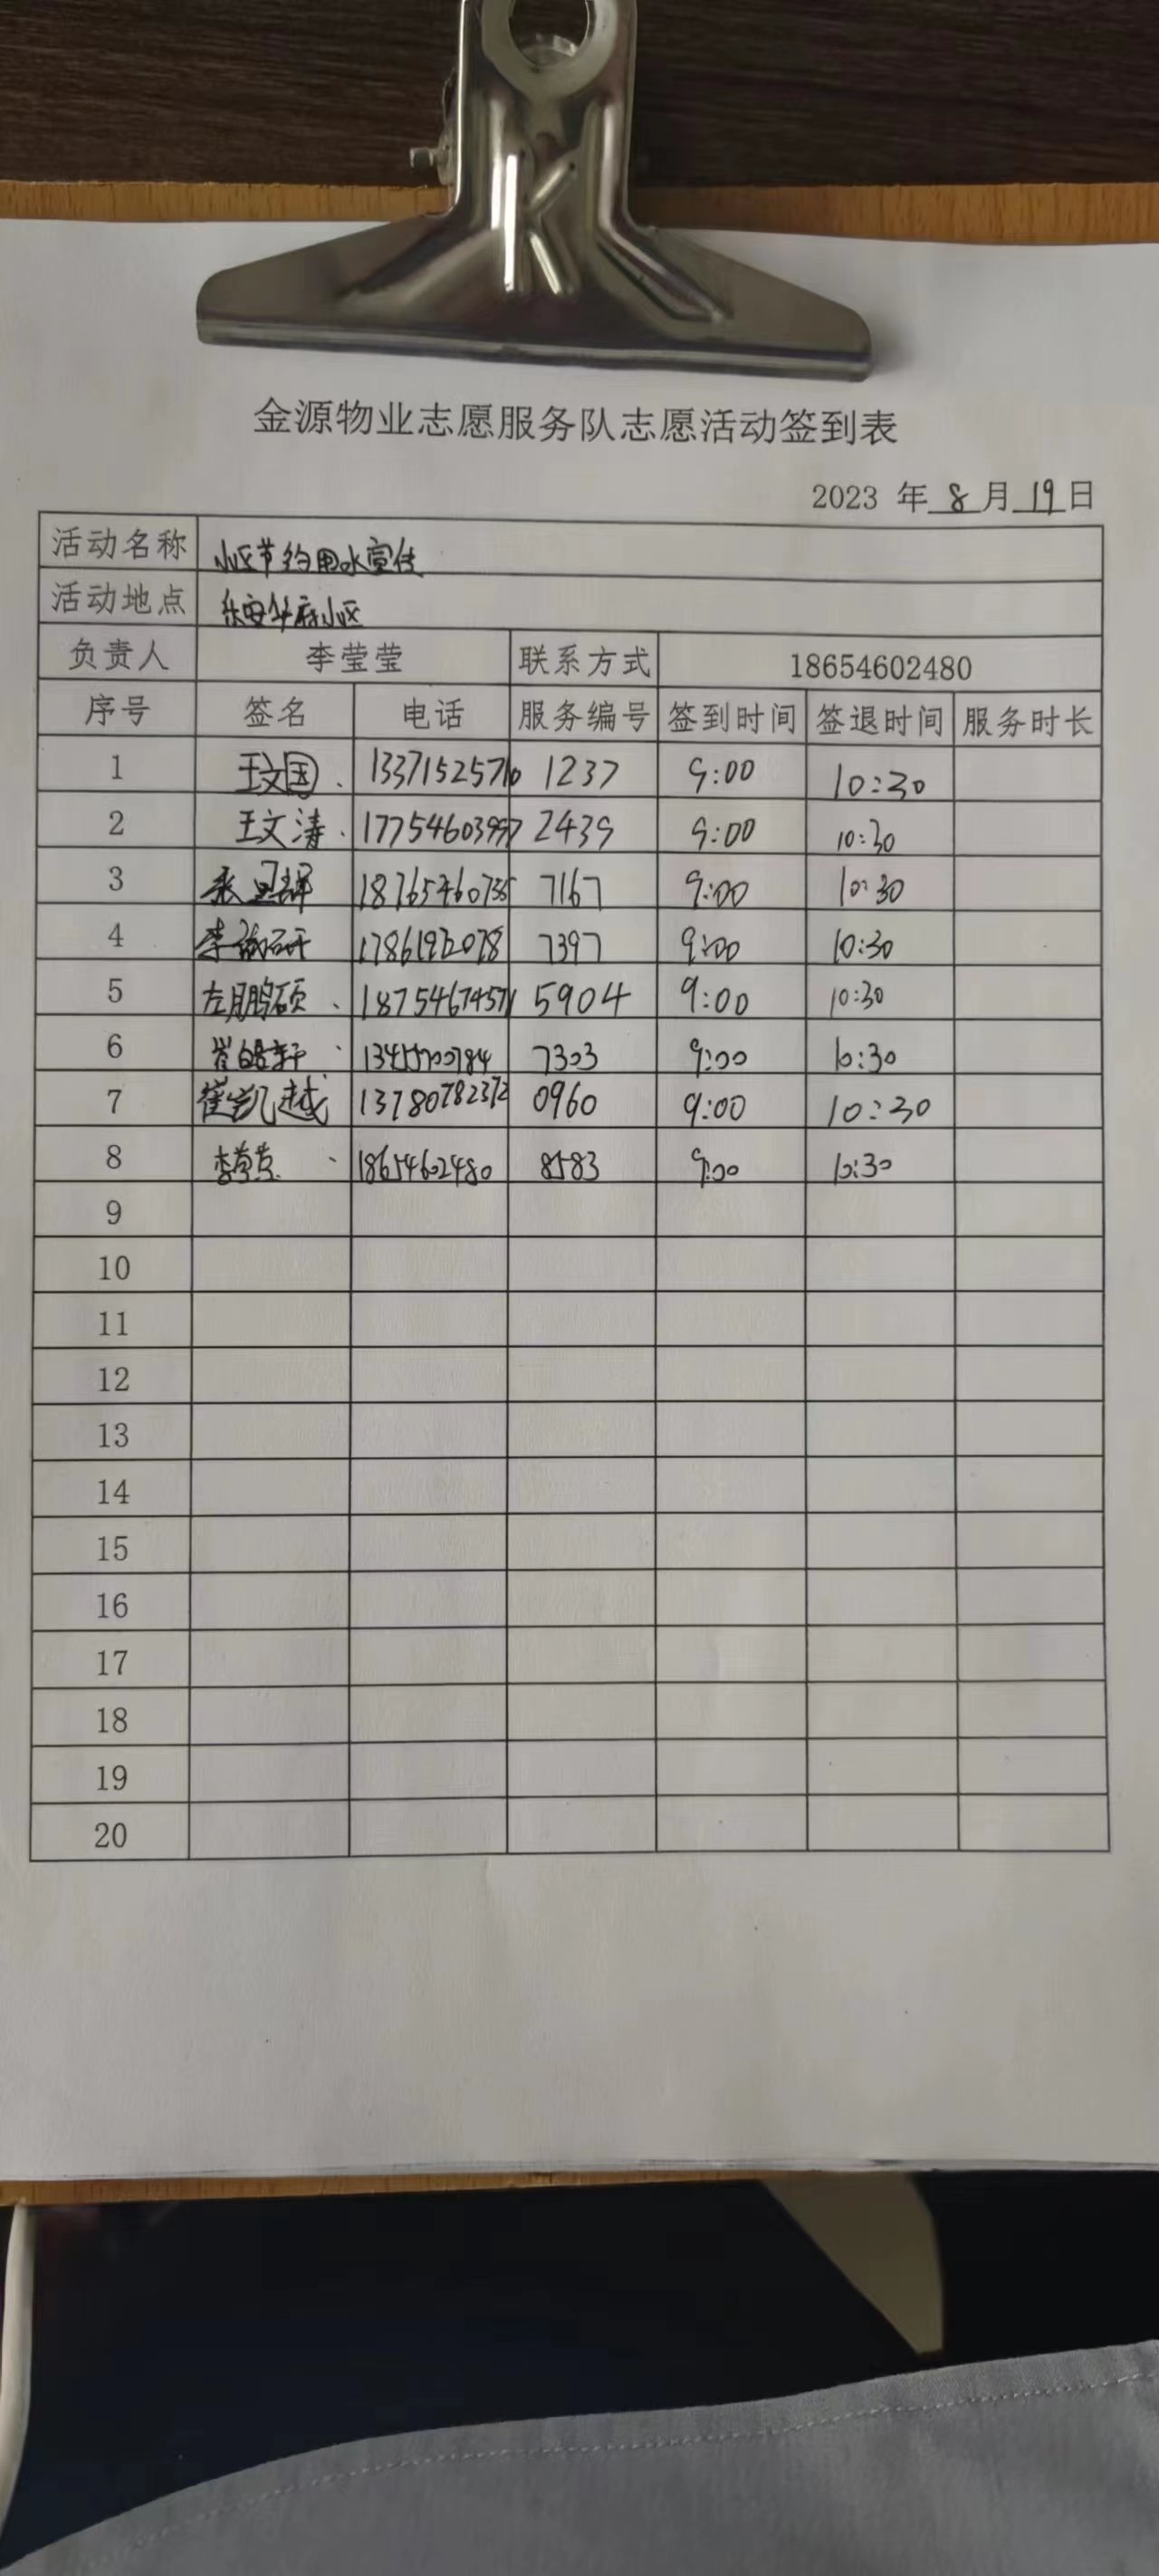 K
金源物业志愿服务队志愿活动签到表
2023 年 8 月 19 日
活动名称 小区节约用水宣传
活动地点 乐安华府小区
负责人 李莹莹 联系方式 18654602480
序号 签名 电话 服务编号 签到时间 签退时间 服务时长
1 王文国 13371525710 1237 9:00 10:30
2 王文涛 17754603997 2439 9:00 10:30
3 18765460735 7167 9:00 10:30
4 李 7397 9:00 10:30
5 左鹏硕 18754674571 5904 9:00 10:30
6 崔皓轩 7303 9:00 10:30
7 崔凯越 13780782372 0960 9:00 10:30
8 李莹莹 18654602480 8583 9:00 10:30
9
10
11
12
13
14
15
16
17
18
19
20